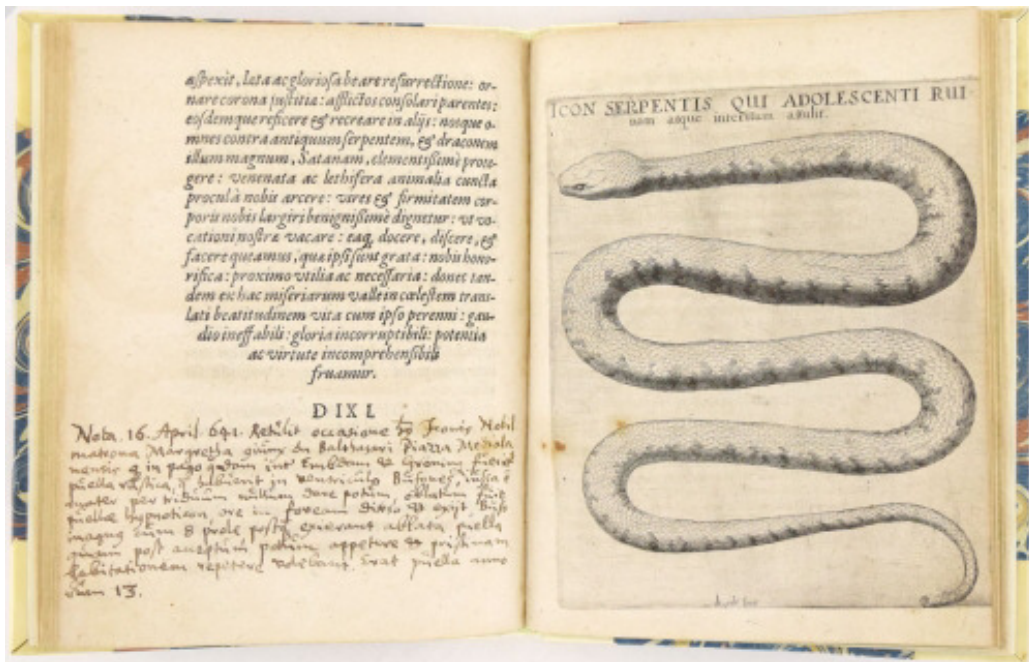 aſpexit, leta ac glorioſa beare reſurrectione: or-
nare corona juſtitiæ: afflictos conſolari parentes:
eoſdemque reficere & recreare in alijs: nosque o-
mnes contra antiquum ſerpentem, & draconem
illum magnum, Satanam, clementiſſimè prote-
gere: venenata ac lethifera animalia cuncta
procul à nobis arcere: vires & firmitatem cor-
poris nobis largiri benigniſſimè dignetur: vt vo-
cationi noſtræ vacare: eaq́ docere, diſcere, &
facere queamus, quæ ipſi ſunt grata: nobis hono-
rifica: proximo vtilia ac neceſſaria: donec tan-
dem ex hac miſeriarum valle in cœleſtem trans-
lati beatitudinem vita cum ipſo perenni: gau-
dio ineffabili: gloria incorruptibili: potentia
ac virtute incomprehenſibili
fruamur.
DIXI.
Nota. 16. April. 641. Retulit occasione Iconis Nobil
matrona Margretha Balthasari Piazza Mediola
nensis in pago int Embdam & Groning
puella rustica, habuerit in ventriculo Bufones, iussa
quater per triduum nullum dare potum, oblatum
puellæ hypnoticum, ore in foveam & exijt Bufo
magnus cum 8 prole exierant ablata puella
post acceptum potum appetere & pristinam
habitationem repetere volebant. Erat puella anno
rum 13.
ICON SERPENTIS, QUI ADOLESCENTI RUI-
nam atque interitum attulit.